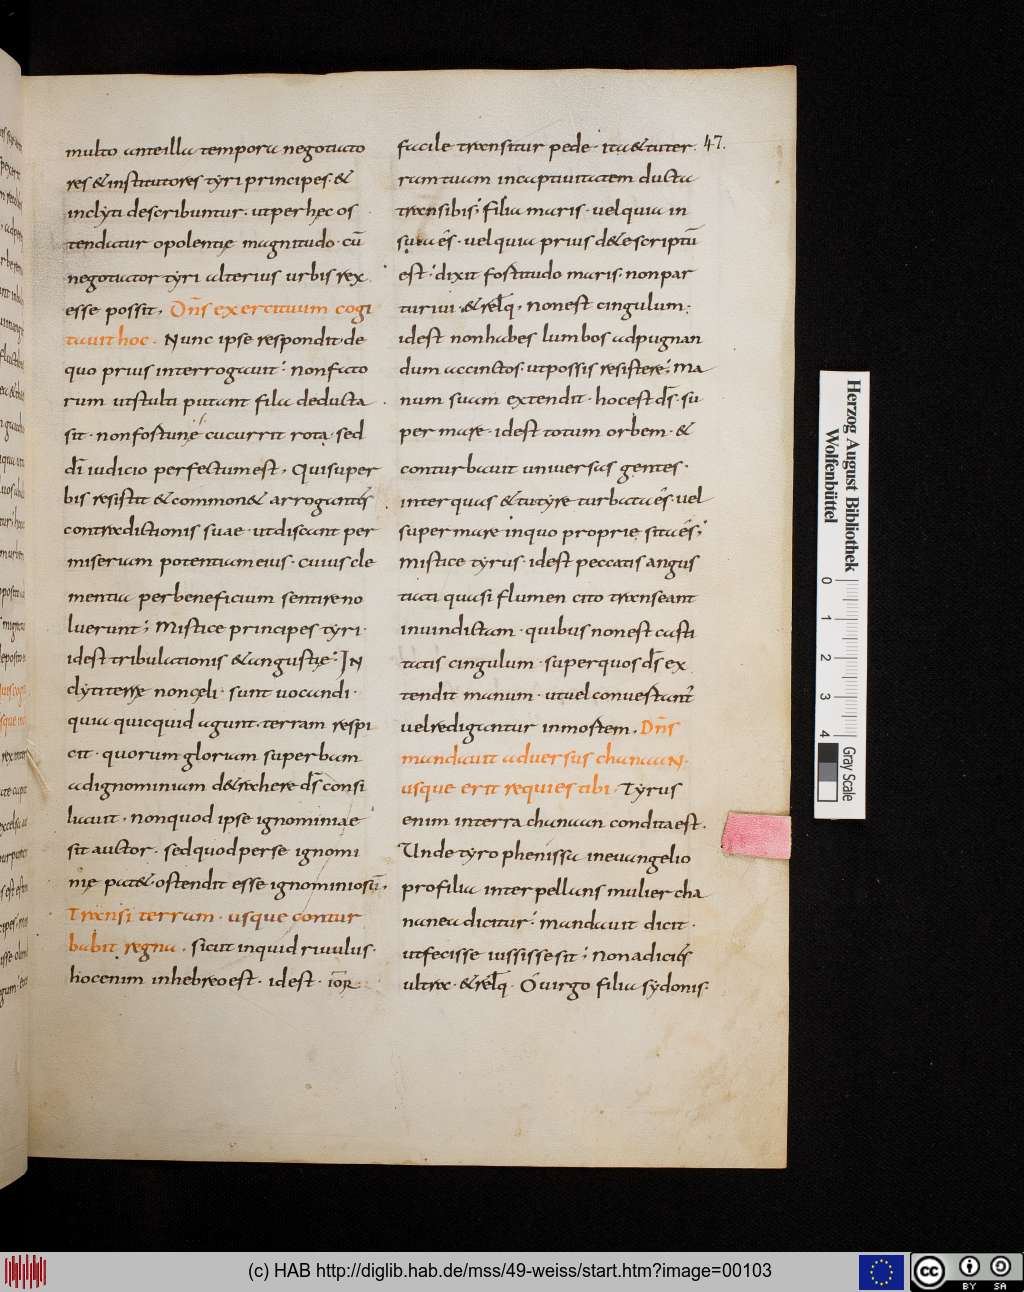 multo anteilla tempora negotiato
res &institutores tyri principes·&
inclyti describuntur· utperhęc os
tendatur opolentię magnitudo· cū
negotiator tyri alterius urbis rex
esse possit, Dn̄s exercituum cogi
tauit hoc. Nunc ipse respondit·de
quo prius interrogauit: nonfato
rum utstulti putant fila deducta
sit· nonfostunę cucurrit rota· sed
dī iudicio perfectumest, Quisuper
bis resistit &common& arrogantēs
contradictionis suae· utdiscant per
miseriam potentiam eius· cuius cle
mentia perbeneficium sentireno
luerunt; Mistice principes tyri·
idest tribulationis &angustię: IN
clyti terrę noncęli· sunt uocandi·
quia quicquid agunt·terram respi
cit· quorum gloriam superbam
adignominiam d&rahere dēs consi
liauit· nonquod ipse ignominiae
sit auctor· sedquodperse ignomi
nię pat&·ostendit esse ignominiosū·
Transi terram· usque contur
babit regna· sicut inquid riuulus·
hocenim inhebreoest· idest·
facile transitur pede· ita&tuter 47.
ram tuam incaptiuitatem ducta
transibis; filia maris· uelquia in
ēs· uelquia prius d&escriptū
est: dixit fostitudo maris·nonpar
turiui·&relq̄, nonest cingulum;
idest nonhabes lumbos adpugnan
dum accinctos·utpossis resistere; Ma
num suam extendit· hocest dēs·su
per mare·idest totum orbem·&
conturbauit uniuersas gentes·
inter quas &tutyre turbata ēs·uel
super mare inquo proprię sita ēs;
Mistice tyrus· idest peccatis angus
tiati quasi flumen cito transeant
inuindictam· quibus nonest casti
tatis cingulum· superquos dēs ex
tendit manum· utuel conuestant̄
uelredigantur inmostem. Dn̄s
mandauit aduersus chanaaN·
usque erit requies tibi· Tyrus
enim interra chanaan conditaest.
Unde tyro phenissa ineuangelio
profilia interpellans mulier cha
nanea dicitur: mandauit dicit·
utfecisse iussisse sit; Nonadiciēs
ultra·&relq̄· O uirgo filia sydonis·
Herzog August Bibliothek
Wolfenbüttel
0 1 2 3 4
Gray Scale
(c) HAB http://diglib.hab.de/mss/49-weiss/start.htm?image=00103
cc BY SA